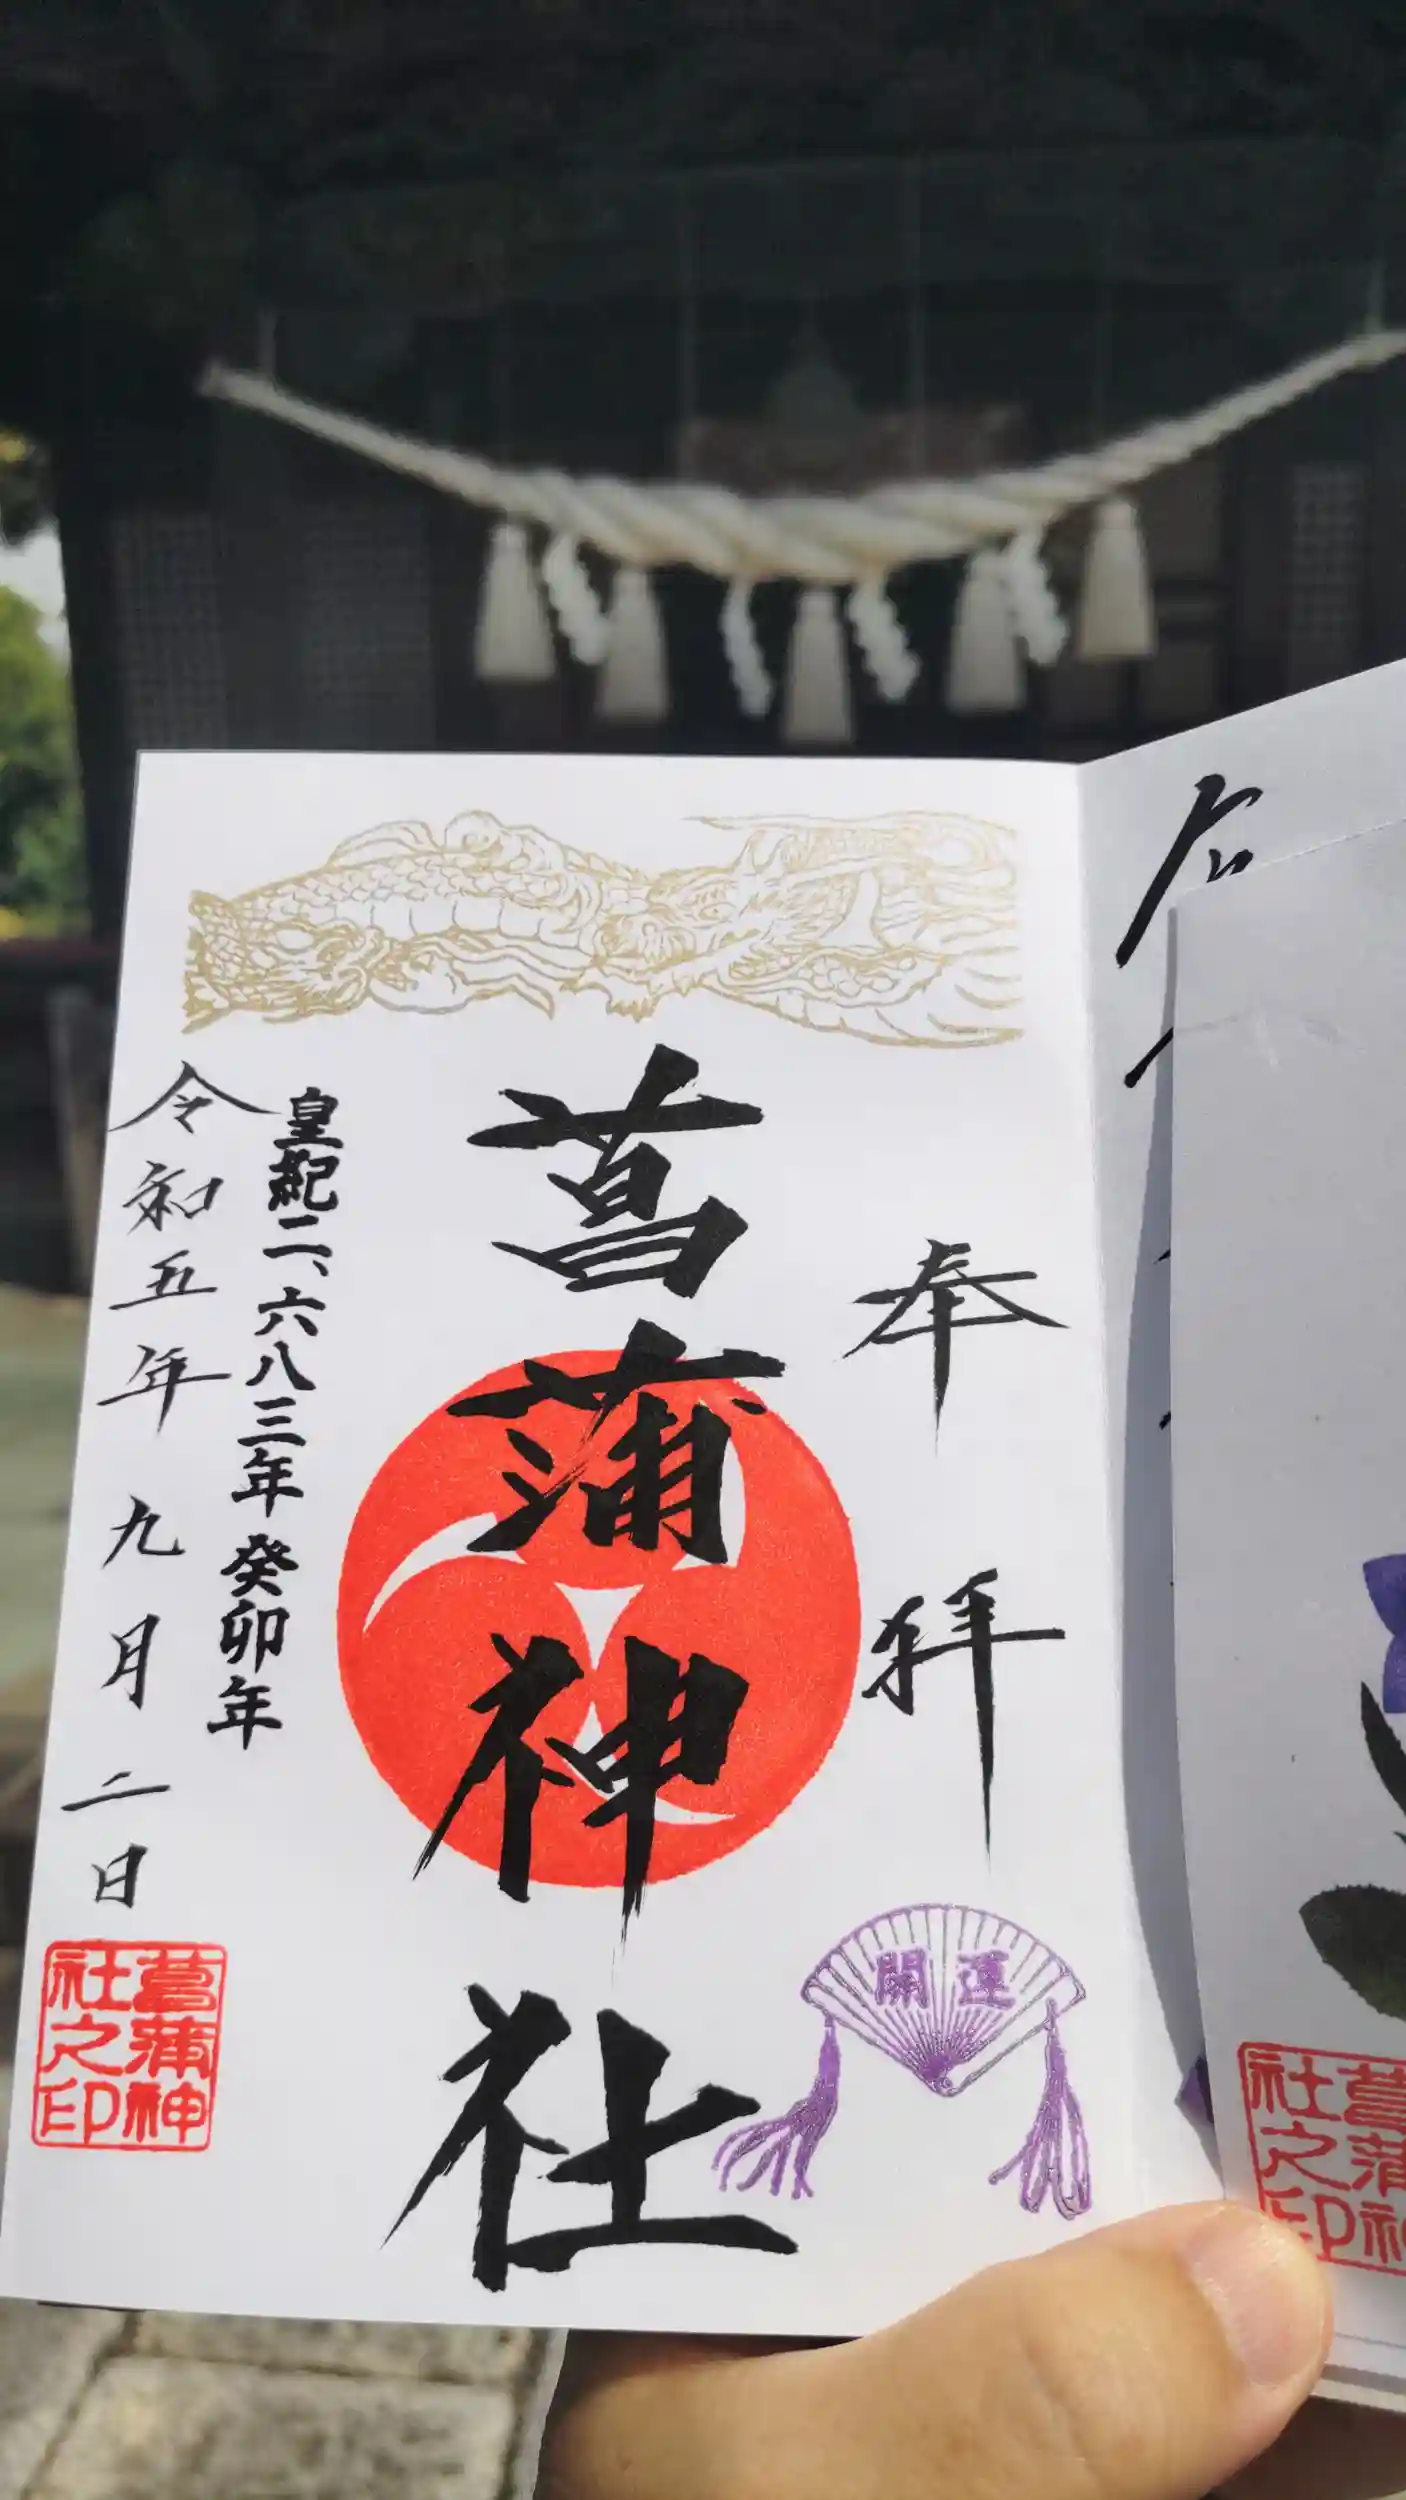 奉拝
菖蒲神社
開運
皇紀二、六八三年癸卯年
令和五年九月二日
菖蒲神
社之印
社之印